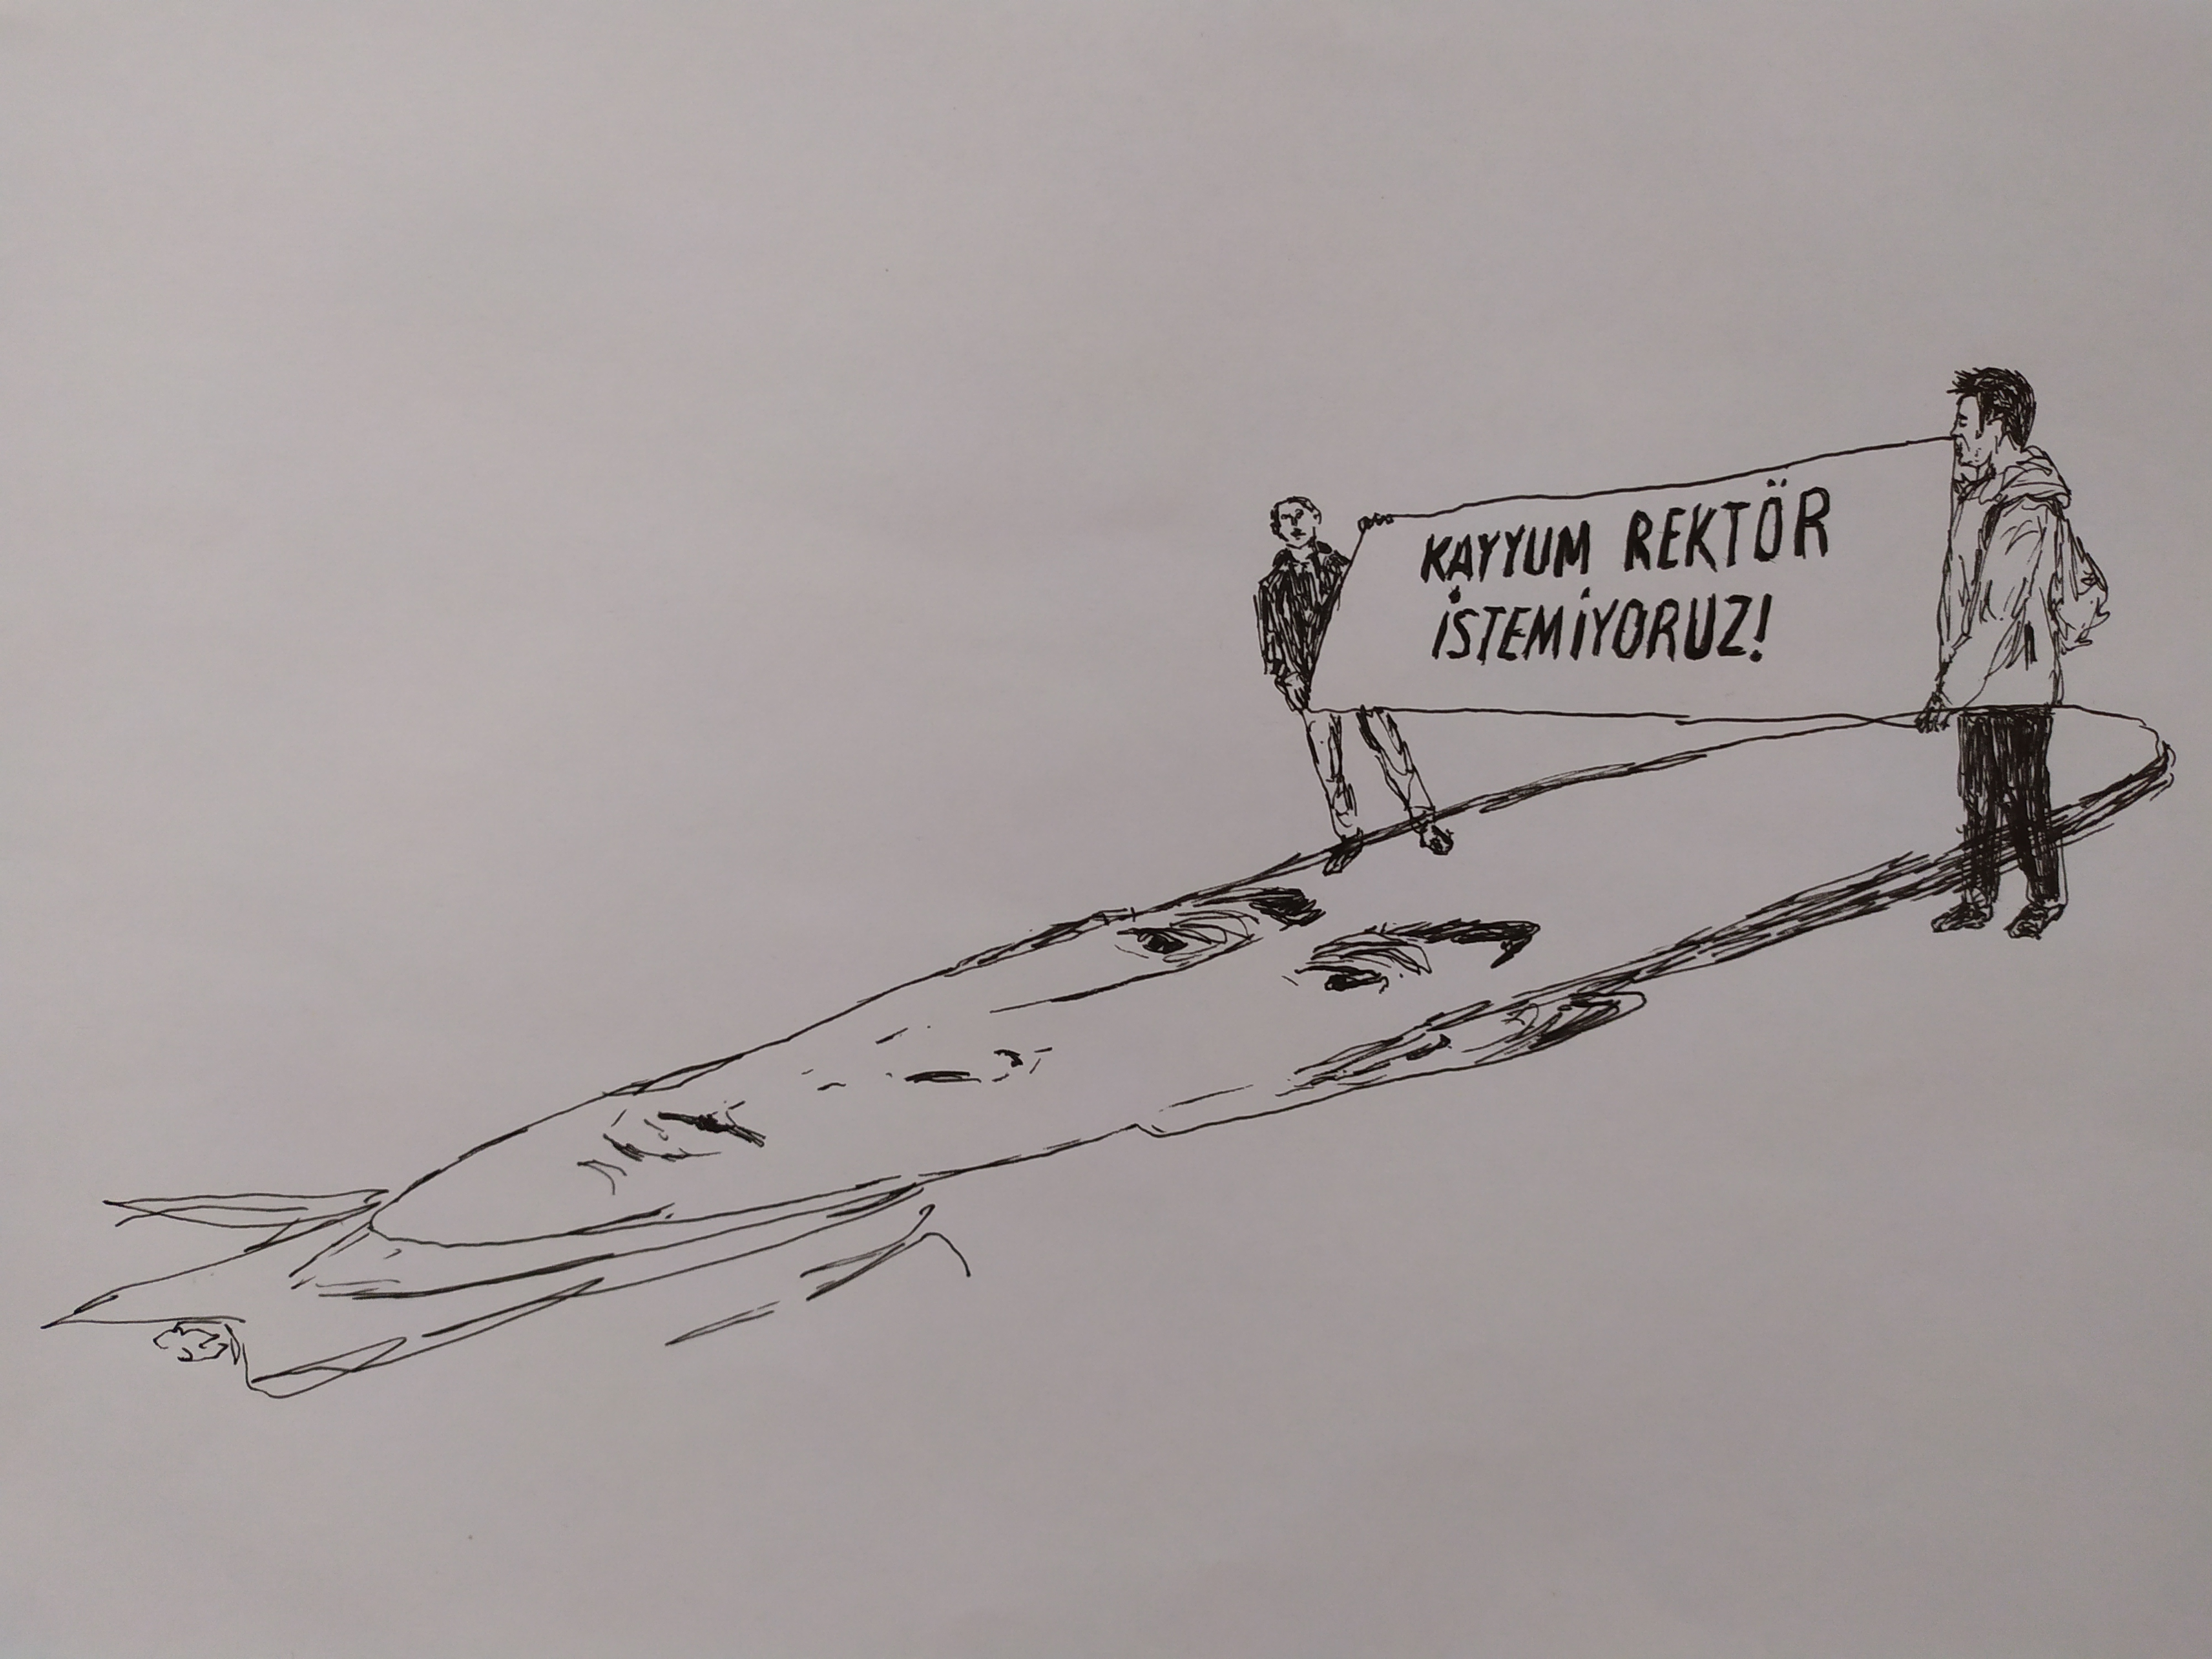 KAYYUM REKTÖR
İSTEMİYORUZ!